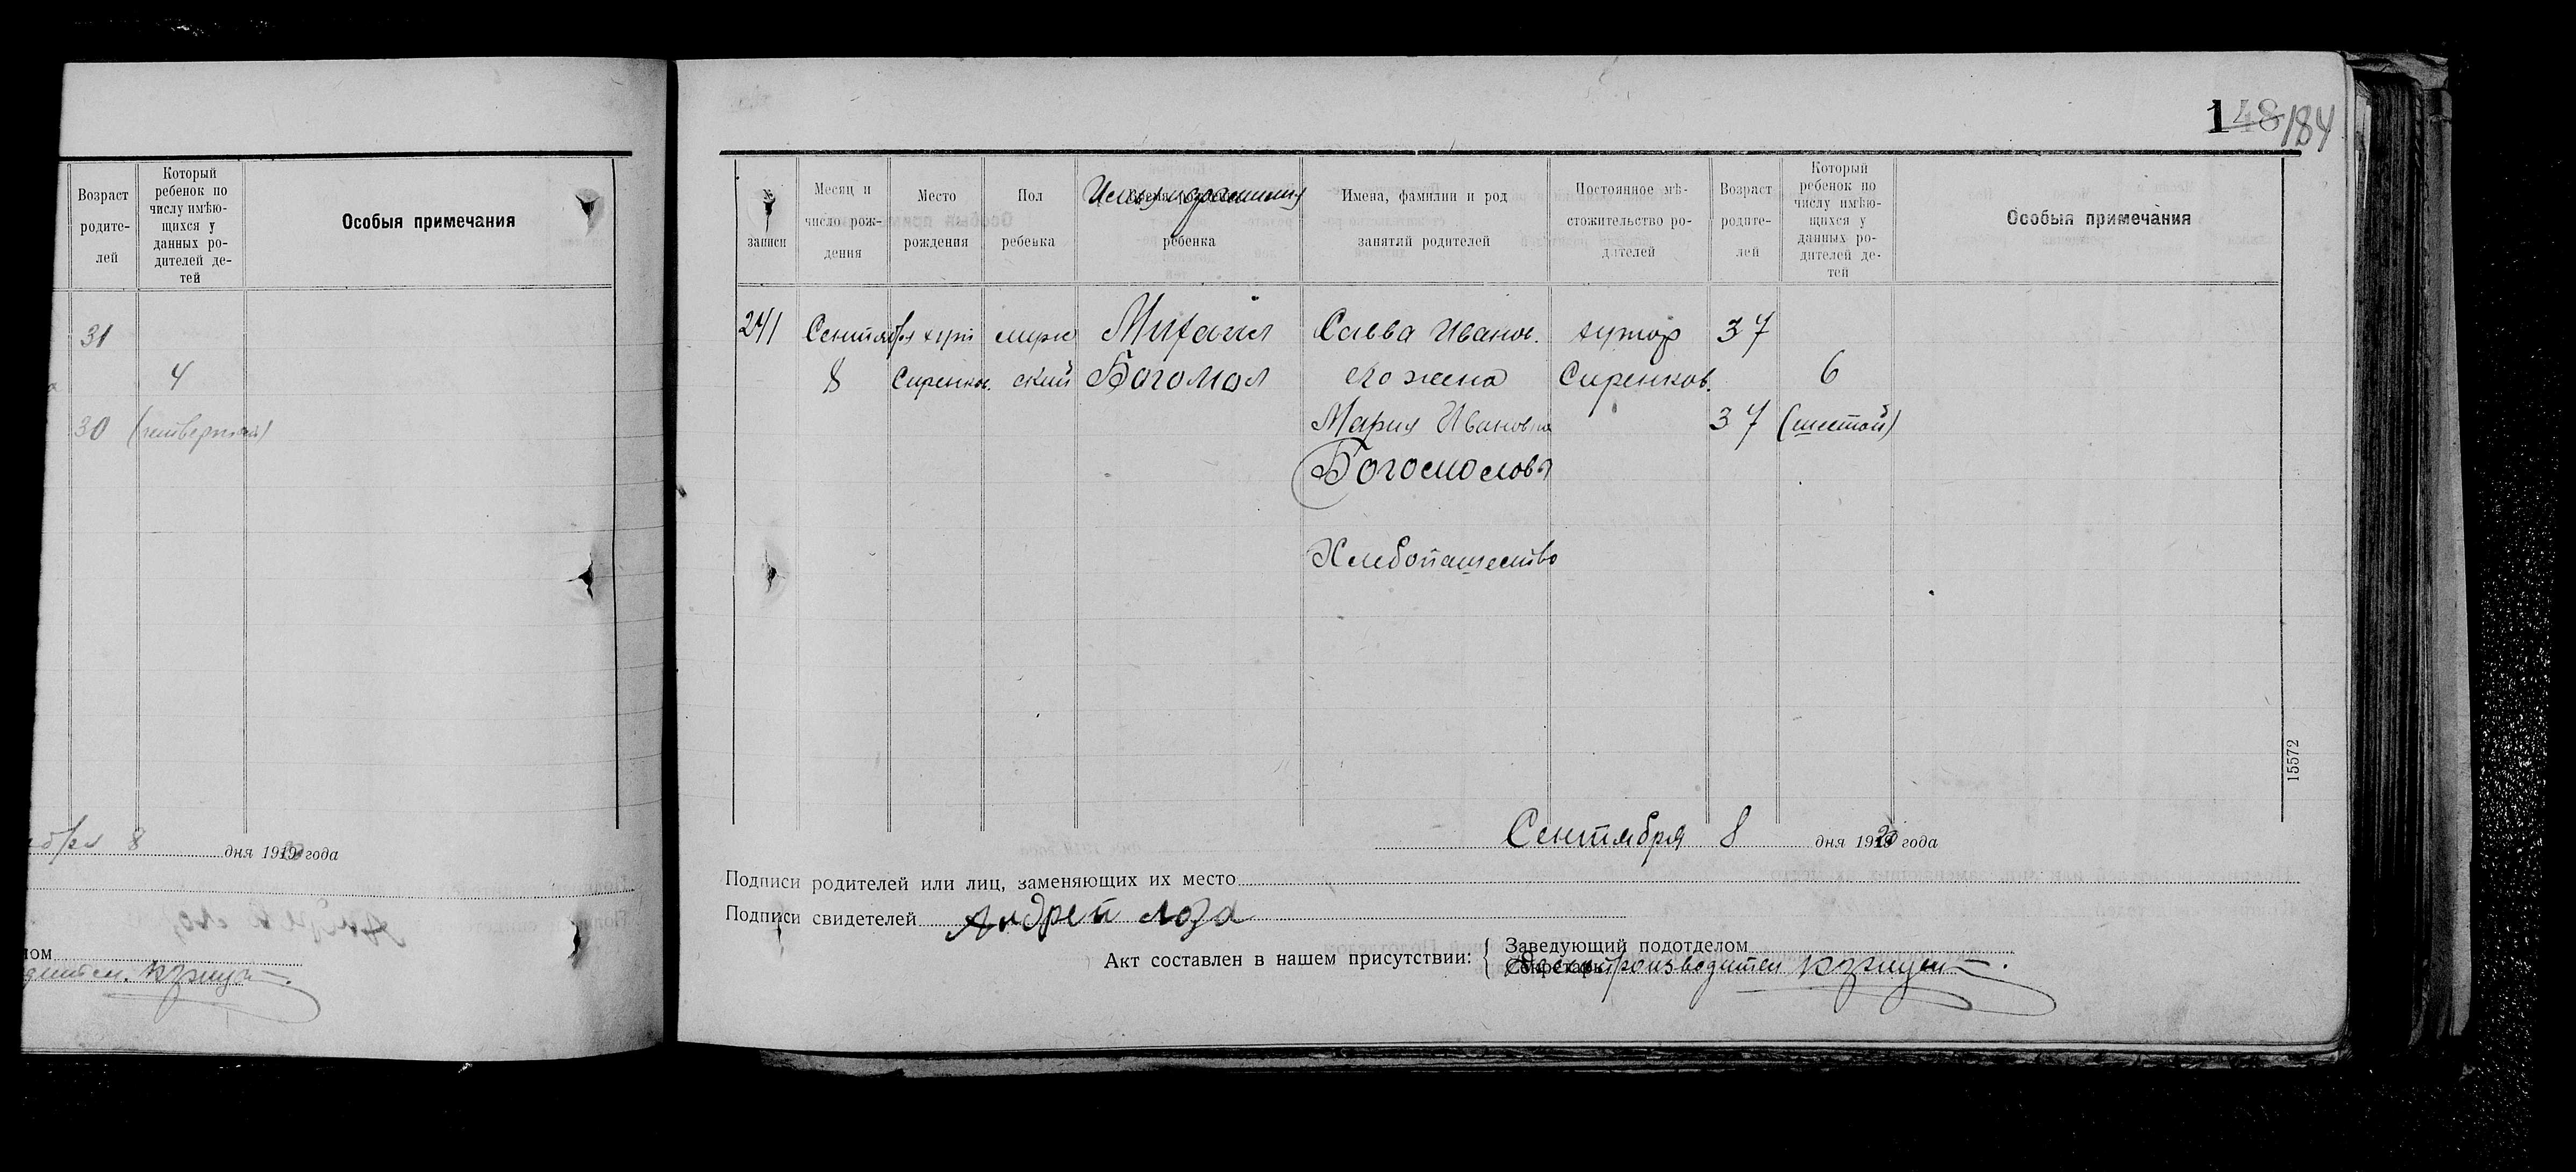 Возраст
родите-
лей
Который
ребенок по
числу имѣю-
щихся у
данных ро-
дителей де-
тей
Особыя примечания
31
4
30 (четвертый)
8 дня 1919 года
148 184
№
записи
Месяц и
число рож-
дения
Место
рождения
Пол
ребенка
ребенка
Имена, фамилии и род
занятий родителей
Постоянное мѣ-
стожительство ро-
дителей
Возраст
родите-
лей
Который
ребенок по
числу имѣю-
щихся у
данных ро-
дителей де-
тей
Особыя примечания
241 Сентября хут мужс Михаил Савва Иванов. хутор 37
8 Сиренков. ский Богомол его жена Сиренков. 6
Мария Ивановна 37 (шестой)
Хлебопашество
15572
Сентября 8 дня 1920 года
Подписи родителей или лиц, заменяющих их место
Подписи свидетелей Андрей Лоза
Акт составлен в нашем присутствии:
Заведующий подотделом
Секретарь Делопроизводитель